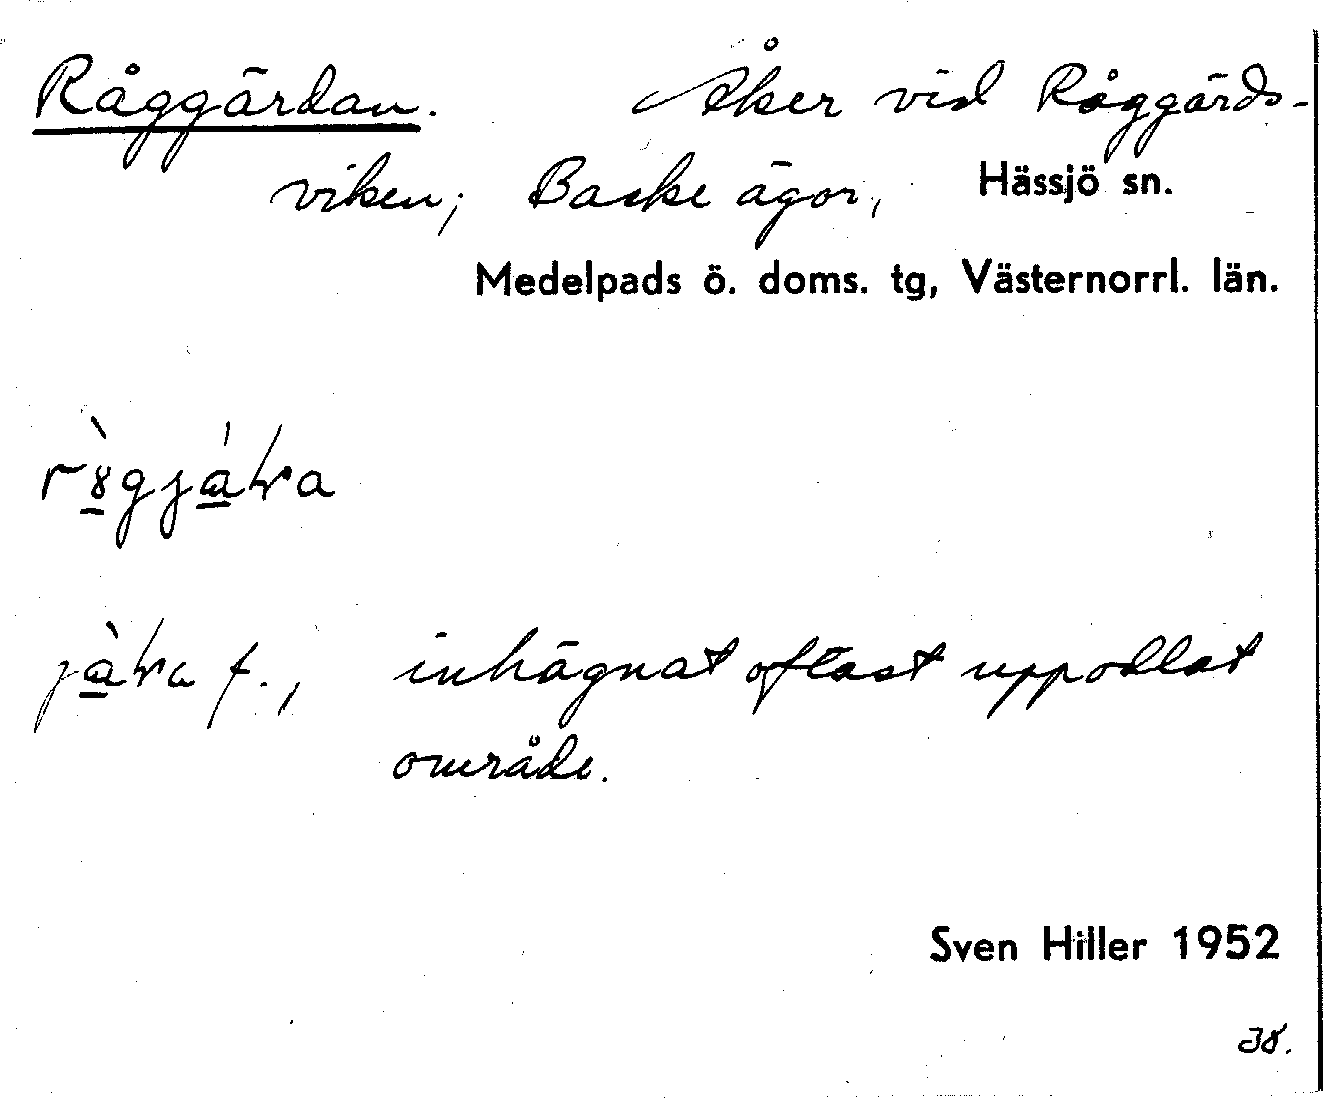 Råggärdan. Åker vid Råggärds-
viken; Backe ägor, Hässjö sn.
Medelpads ö. doms. tg, Västernorrl. län.
f., inhägnat oftast uppodlat
område.
Sven Hiller 1952